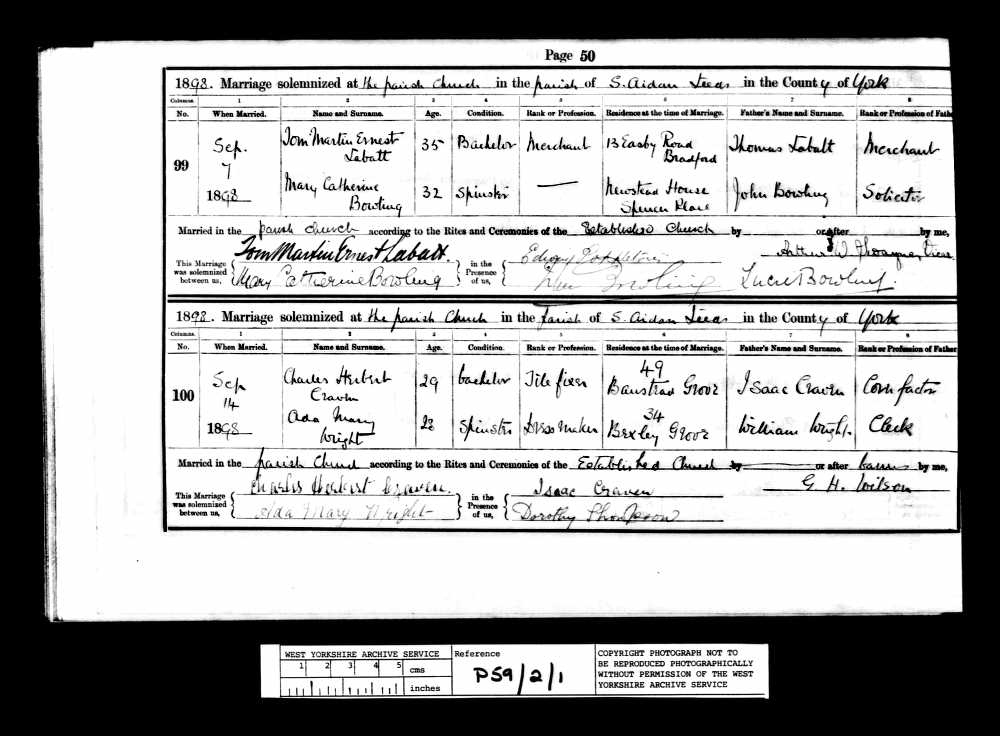 Page 50
1898. Marriage solemnized at the parish Church in the parish of S. Aidan Leeds in the County of York
Columns 1 2 3 4 5 6 7 8
No. When Married. Name and Surname. Age. Condition. Rank or Profession. Residence at the time of Marriage. Father's Name and Surname. Rank or Profession of Father
99 Sep. 7 1898
Tom Martin Ernest Labatt 35 Bachelor Merchant 13 Easby Road Bradford Thomas Labatt Merchant
Mary Catherine Bowling 32 Spinster — Newstead House Spencer Place John Bowling Solicitor
Married in the parish church according to the Rites and Ceremonies of the Established Church by or after by me,
Tom Martin Ernest Labatt. Arthur W
This Marriage was solemnized between us, Mary Catherine Bowling in the Presence of us, Bowling Lucie Bowling.
1898. Marriage solemnized at the parish Church in the Parish of S. Aidan Leeds in the County of York
Columns. 1 2 3 4 5 6 7 8
No. When Married. Name and Surname. Age. Condition. Rank or Profession. Residence at the time of Marriage. Father's Name and Surname. Rank or Profession of Father
100 Sep 14 1898
Charles Herbert Craven 29 bachelor Tile fixer 49 Banstead Grove Isaac Craven Corn factor
Ada Mary Wright 28 Spinster Dress Maker 34 Bexley Grove William Wright. Clerk
Married in the parish Church according to the Rites and Ceremonies of the Established Church by or after banns by me,
Charles Herbert Craven. Isaac Craven G H. Wilson
This Marriage was solemnized between us, Ada Mary Wright in the Presence of us, Dorothy Thompson
WEST YORKSHIRE ARCHIVE SERVICE
1 2 3 4 5 cms
inches
Reference
P59/2/1
COPYRIGHT PHOTOGRAPH NOT TO
BE REPRODUCED PHOTOGRAPHICALLY
WITHOUT PERMISSION OF THE WEST
YORKSHIRE ARCHIVE SERVICE